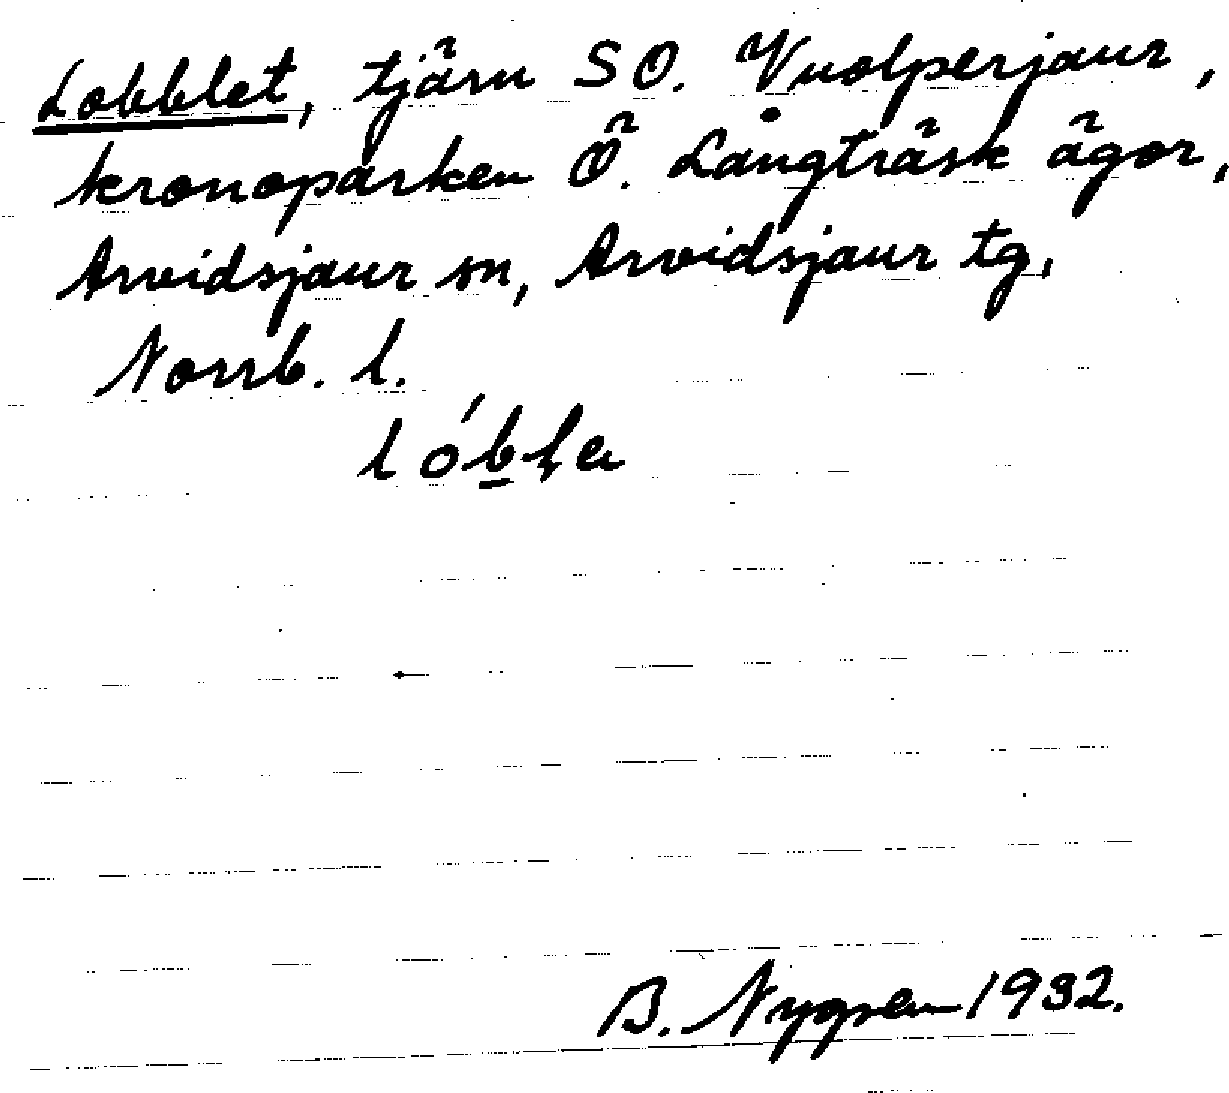 Lobblet, tjärn SO. Vuolperjaur,
kronoparken Ö. Långträsk ägor,
Arvidsjaur sn, Arvidsjaur tg,
Norrb. l.
lób̲ła
B. Nygren 1932.